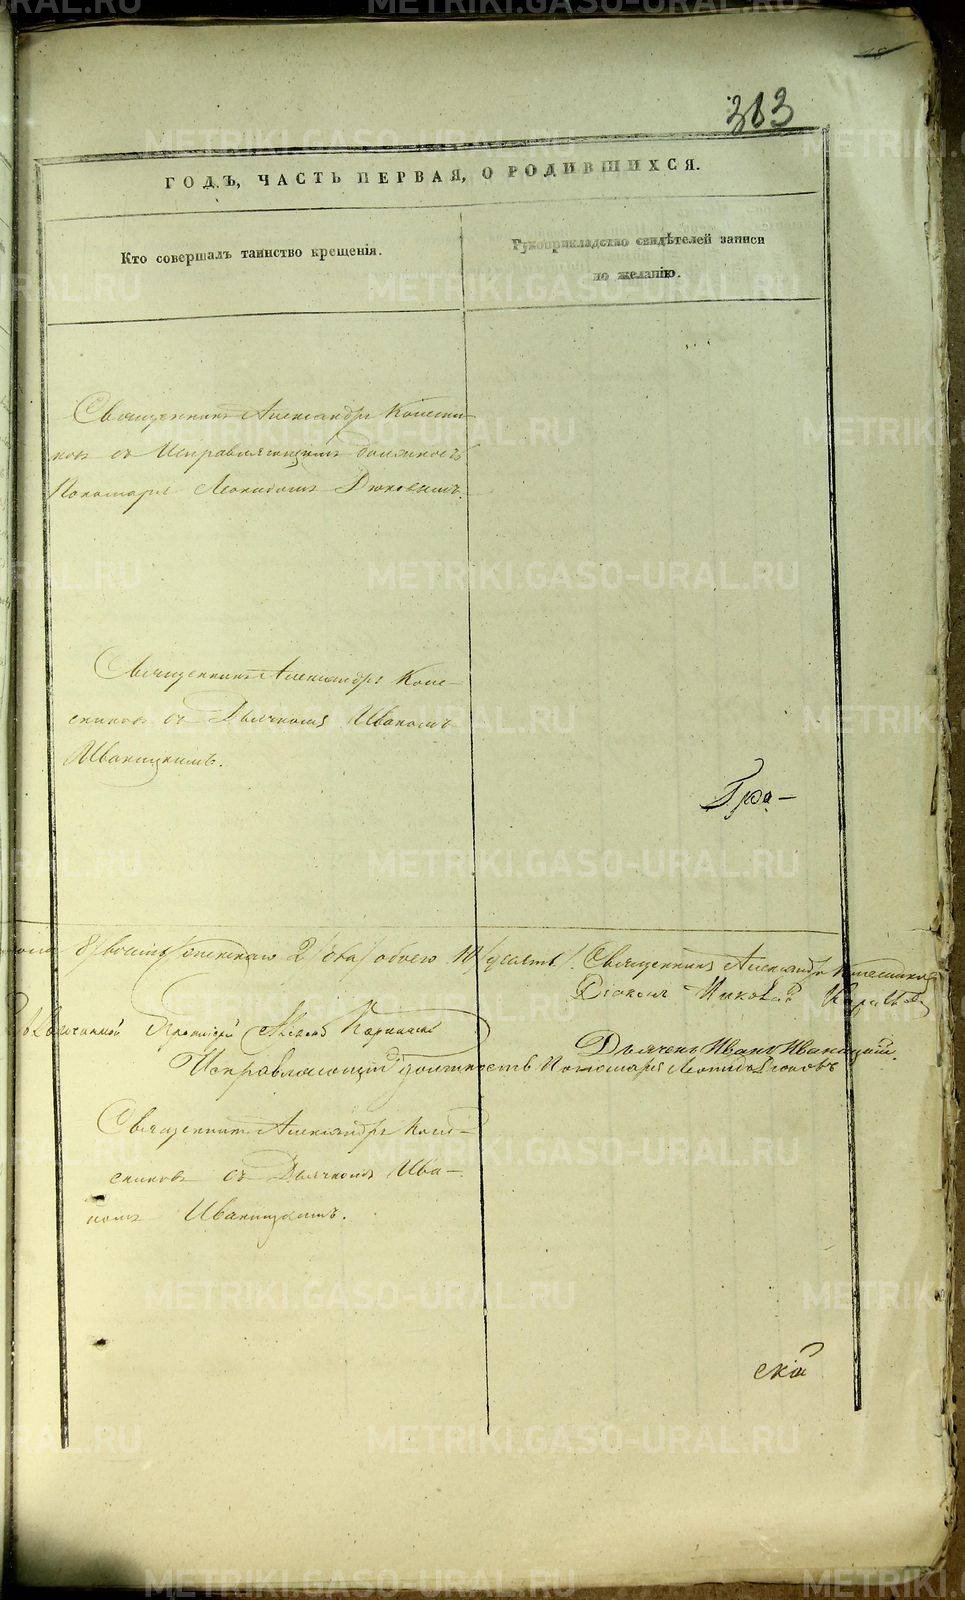 313
ГОДЪ, ЧАСТЬ ПЕРВАЯ, О РОДИВШИХСЯ.
Кто совершалъ таинство крещенія.
Рукоприкладство свидѣтелей записи
по желанію.
Священникъ Александръ Колесни-
ковъ съ Исправляющимъ должность
Пономаря Леонидомъ Дюковымъ.
Священникъ Александръ Коле-
сниковъ съ Дьячкомъ Иваномъ
Иваницкимъ.
Гра-
8/восемь/женскаго 2/два/обоего 10/десять/. Священникъ Александръ Колесниковъ
Діаконъ Николай
Дьячекъ Иванъ Иваницкій.
Исправляющій должность Пономаря Леонидъ Дюковъ
Священникъ Александръ Коле-
сниковъ съ Дьячкомъ Ива-
номъ Иваницкимъ.
ской
METRIKI.GASO-URAL.RU